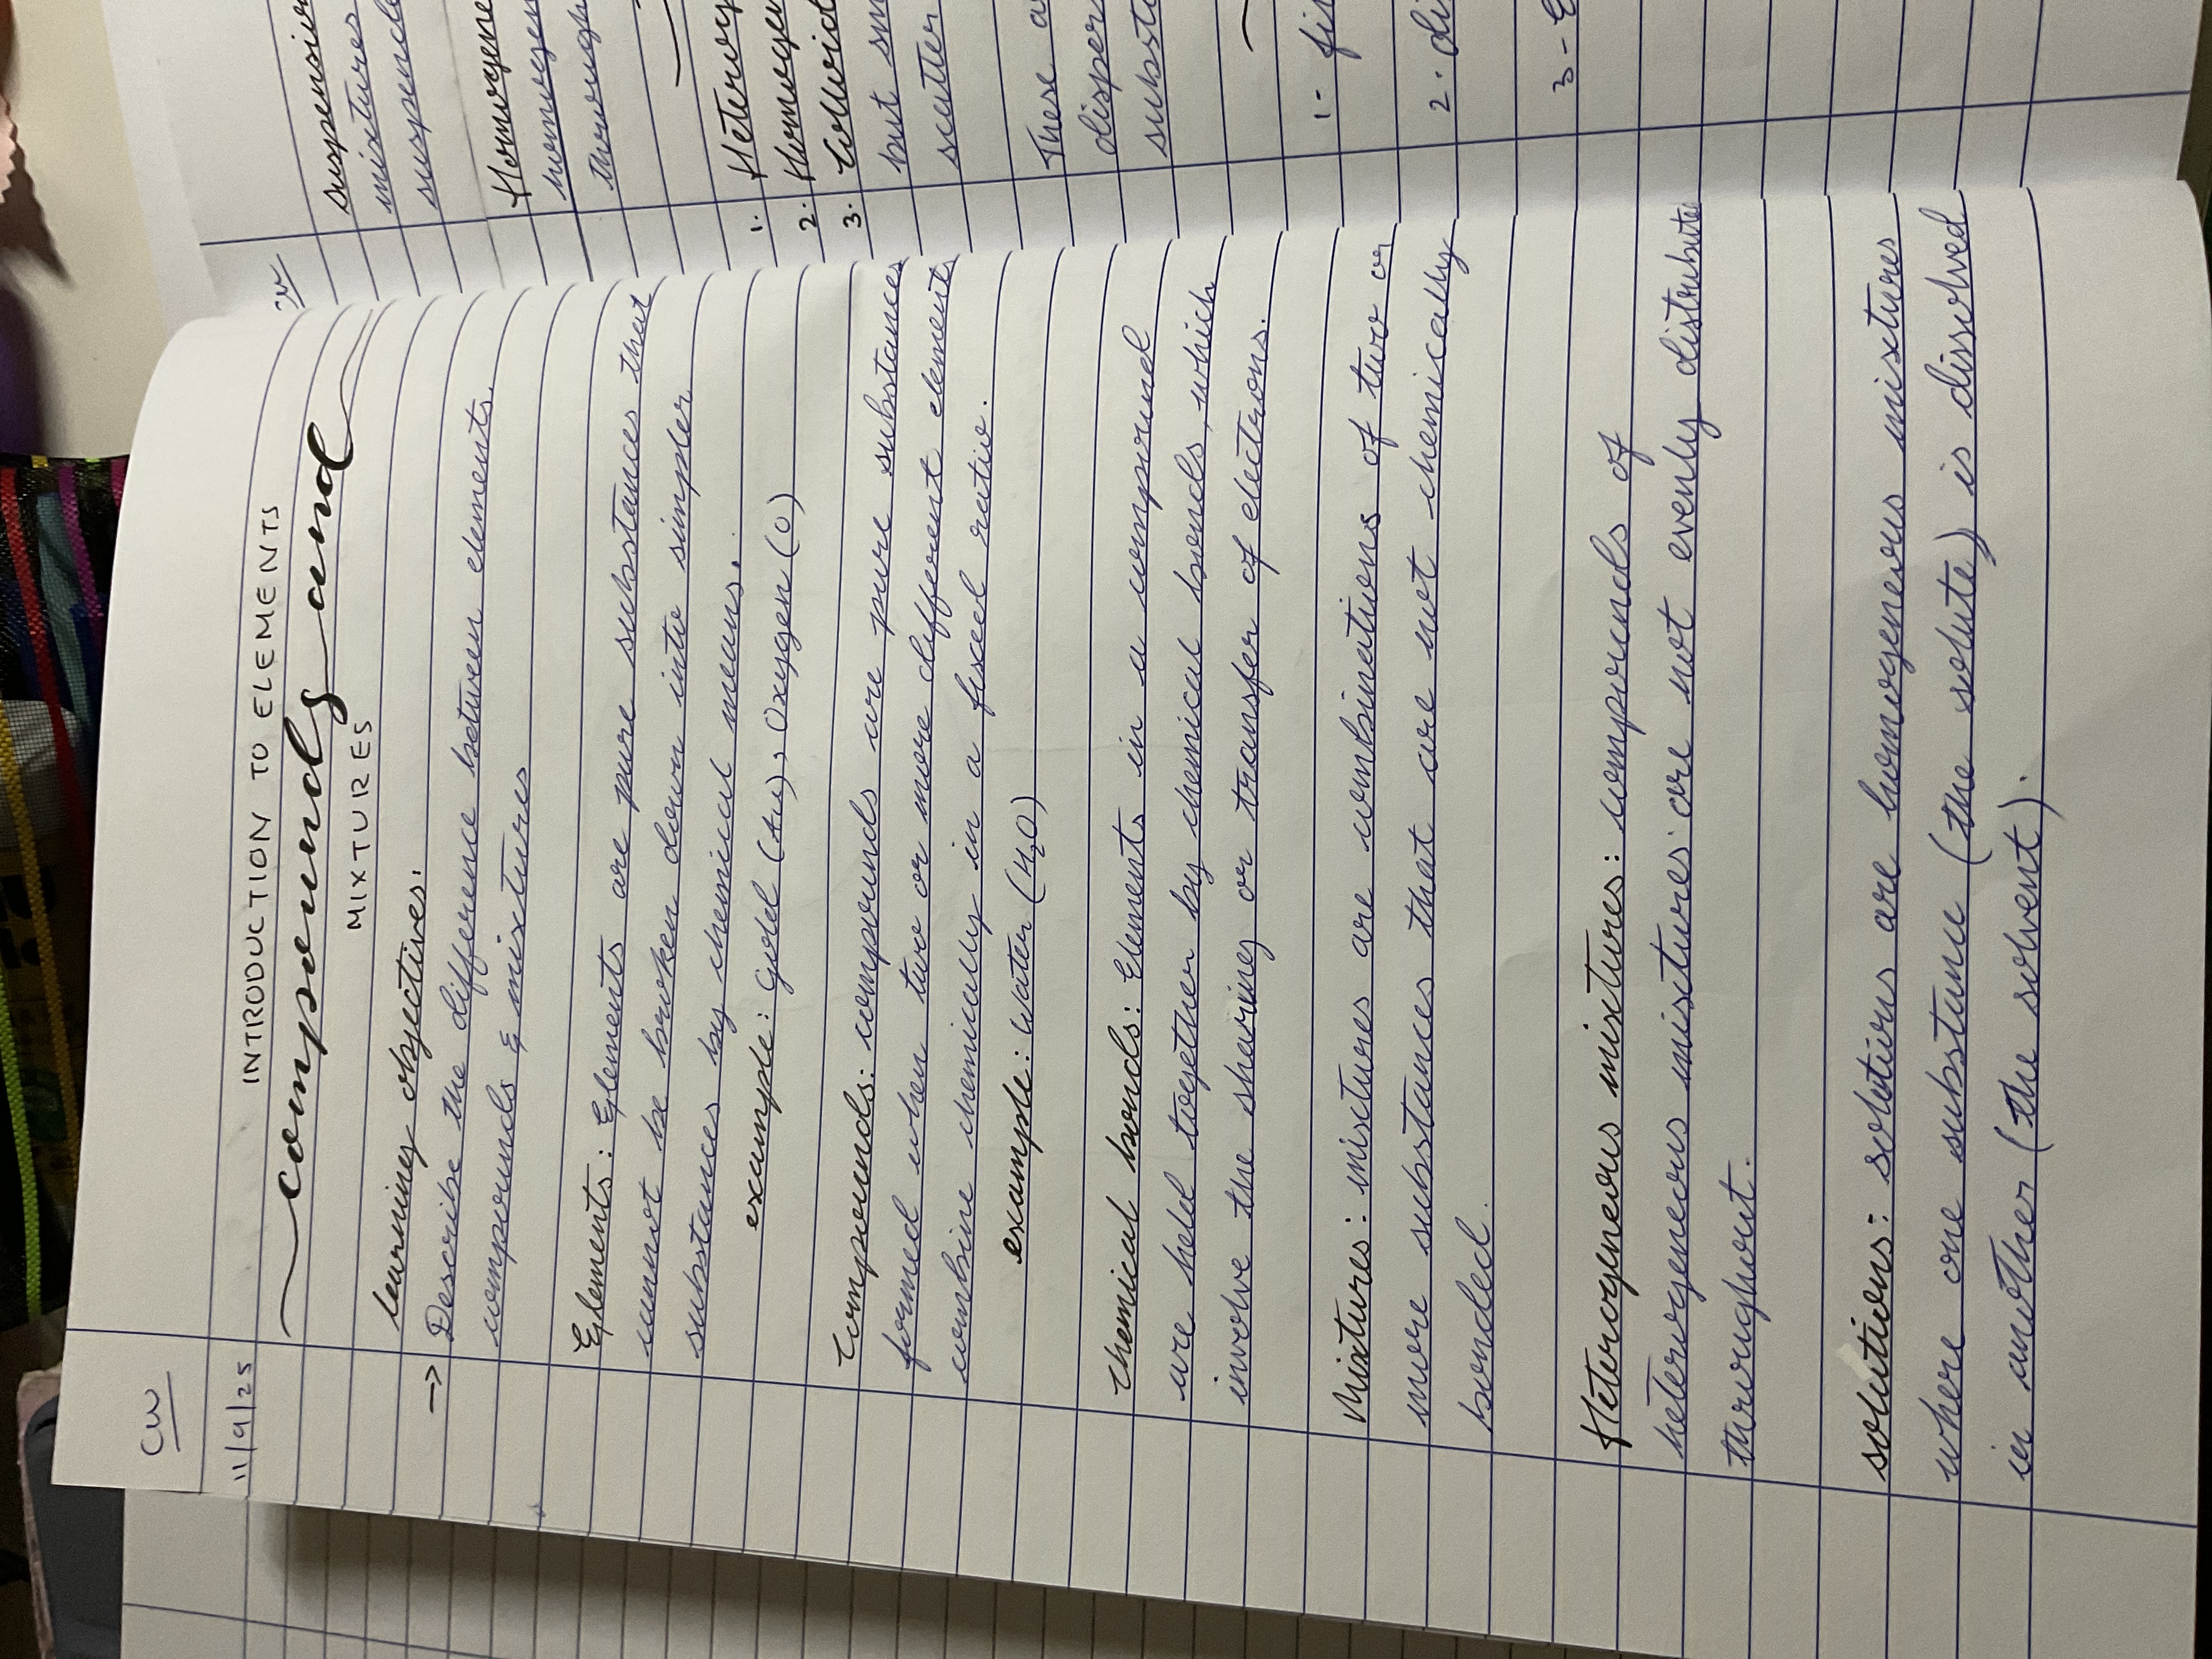 CW
11/9/25
INTRODUCTION TO ELEMENTS
compounds and
MIXTURES
learning objectives:
→ Describe the difference between elements,
compounds & mixtures
Elements: Elements are pure substances that
cannot be broken down into simpler
substances by chemical means.
example: gold (Au), Oxygen (O)
Compounds: compounds are pure substances
formed when two or more different elements
combine chemically in a fixed ratio.
example: water (H₂O)
Chemical bonds: Elements in a compound
are held together by chemical bonds, which
involve the sharing or transfer of electrons.
Mixtures: mixtures are combinations of two or
more substances that are not chemically
bonded.
Heterogeneous mixtures: compounds of
heterogeneous mixtures are not evenly distribute
throughout.
solutions: solutions are homogenerous mixtures
where one substance (the solute) is dissolved
in another (the solvent).
suspension
mixtures
suspende
Homogene
homogen
through
1. Heterog
2. Homogen
3. Colloid
but sm
scatter
These a
disper
substa
1- fi
2. di
3-